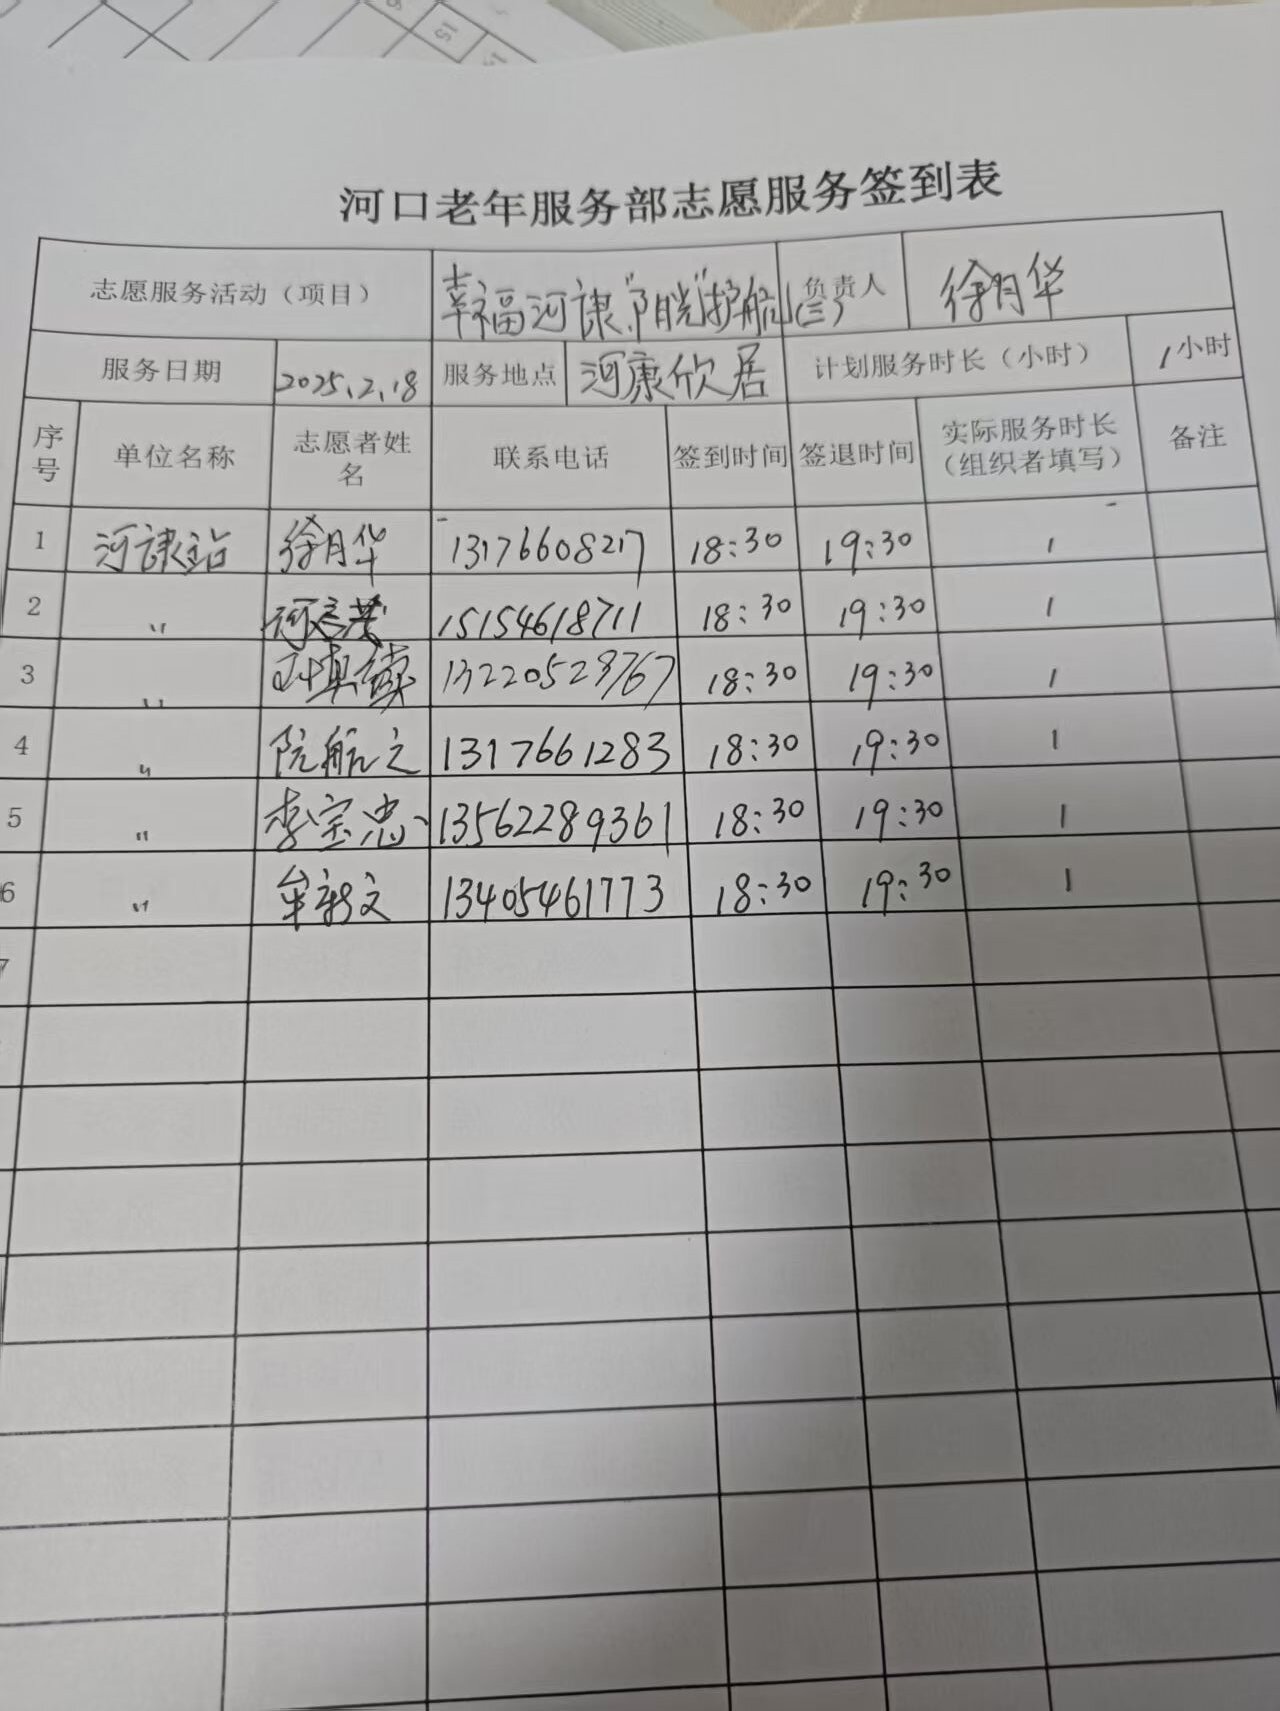 河口老年服务部志愿服务签到表
志愿服务活动（项目） 幸福河康"阳光"护航(三) 负责人 徐月华
服务日期 2025.2.18 服务地点 河康欣居 计划服务时长（小时） 1小时
序号 单位名称 志愿者姓名 联系电话 签到时间 签退时间 实际服务时长（组织者填写） 备注
1 河康站 徐月华 13176608217 18:30 19:30 1
2 〃 15154618711 18:30 19:30 1
3 〃 13220528767 18:30 19:30 1
4 〃 阮航之 1317661283 18:30 19:30 1
5 〃 李宝忠 13562289361 18:30 19:30 1
6 〃 牟新文 13405461773 18:30 19:30 1
7